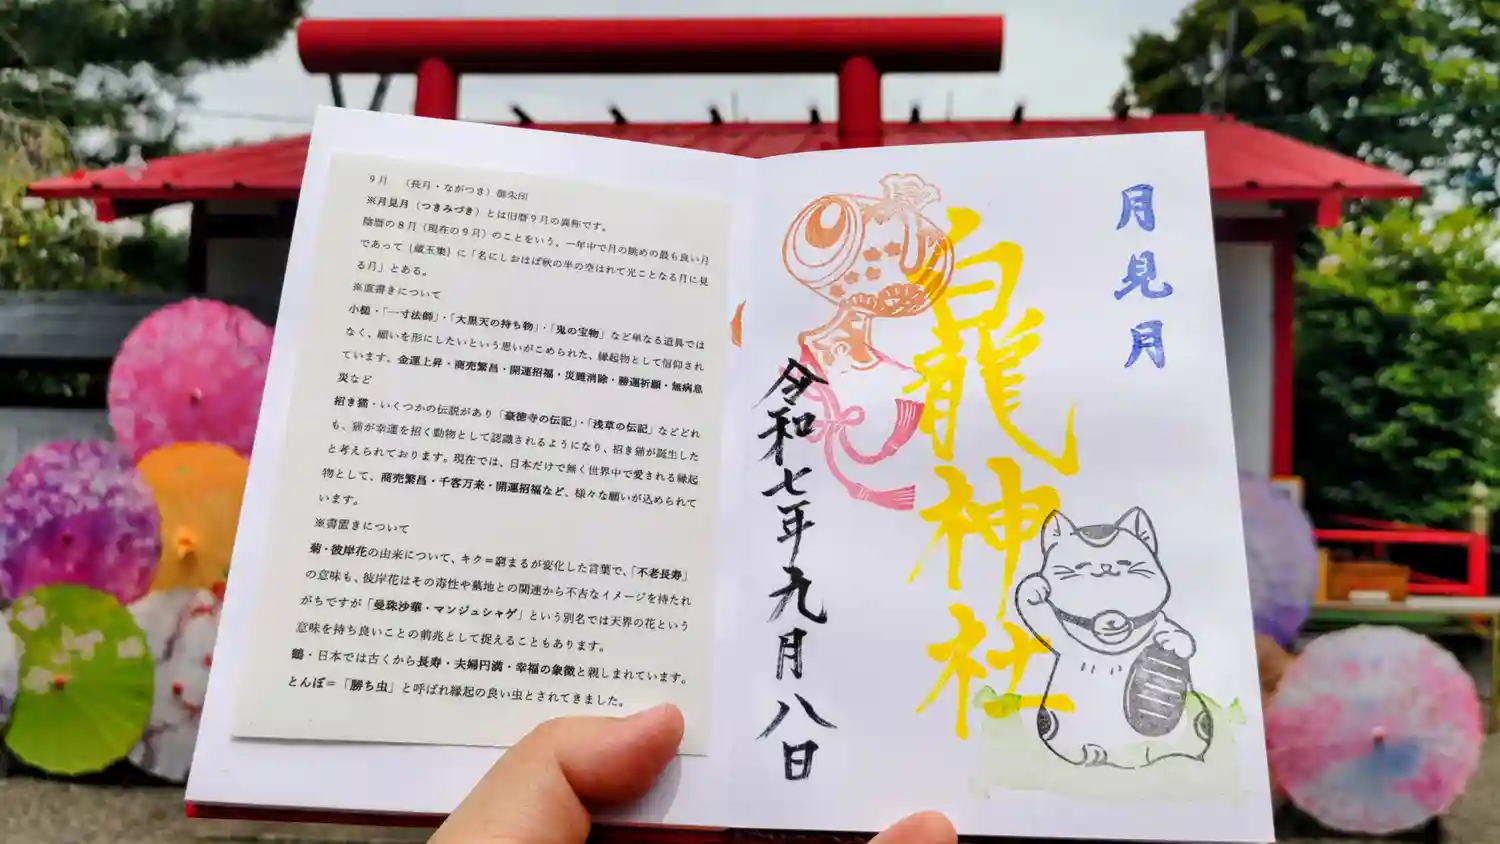 ９月　（長月・ながつき）御朱印
※月見月（つきみづき）とは旧暦９月の異称です。
陰暦の８月（現在の９月）のことをいう。一年中で月の眺めの最も良い月
であって（蔵玉集）に「名にしおはば秋の半の空はれて光ことなる月に見
る月」とある。
※直書きについて
小槌・「一寸法師」・「大黒天の持ち物」・「鬼の宝物」など単なる道具では
なく、願いを形にしたいという思いがこめられた、縁起物として信仰され
ています。金運上昇・商売繁昌・開運招福・災難消除・勝運祈願・無病息
災など
招き猫・いくつかの伝説があり「豪徳寺の伝記」・「浅草の伝記」などどれ
も、猫が幸運を招く動物として認識されるようになり、招き猫が誕生した
と考えられております。現在では、日本だけで無く世界中で愛される縁起
物として、商売繁昌・千客万来・開運招福など、様々な願いが込められて
います。
※書置きについて
菊・彼岸花の由来について、キク＝窮まるが変化した言葉で、「不老長寿」
の意味も、彼岸花はその毒性や墓地との関連から不吉なイメージを持たれ
がちですが「曼珠沙華・マンジュシャゲ」という別名では天界の花という
意味を持ち良いことの前兆として捉えることもあります。
鶴・日本では古くから長寿・夫婦円満・幸福の象徴と親しまれています。
とんぼ＝「勝ち虫」と呼ばれ縁起の良い虫とされてきました。
月見月
白龍神社
令和七年九月八日